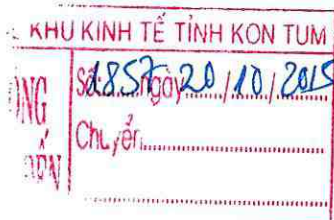 KHU KINH TẾ TỈNH KON TUM
Số:1857.ngày 20/10/2015
ĐẾN
Chuyển